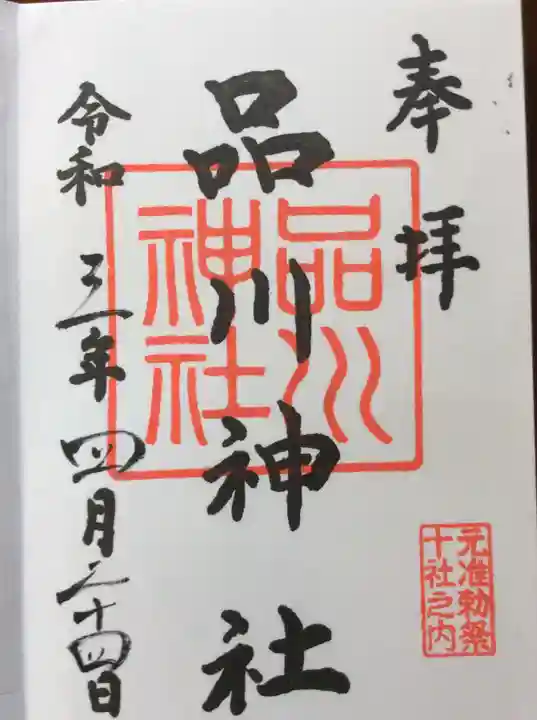 奉拝
品川神社
品川
神社
令和三年四月二十四日
元准勅祭
十社之内